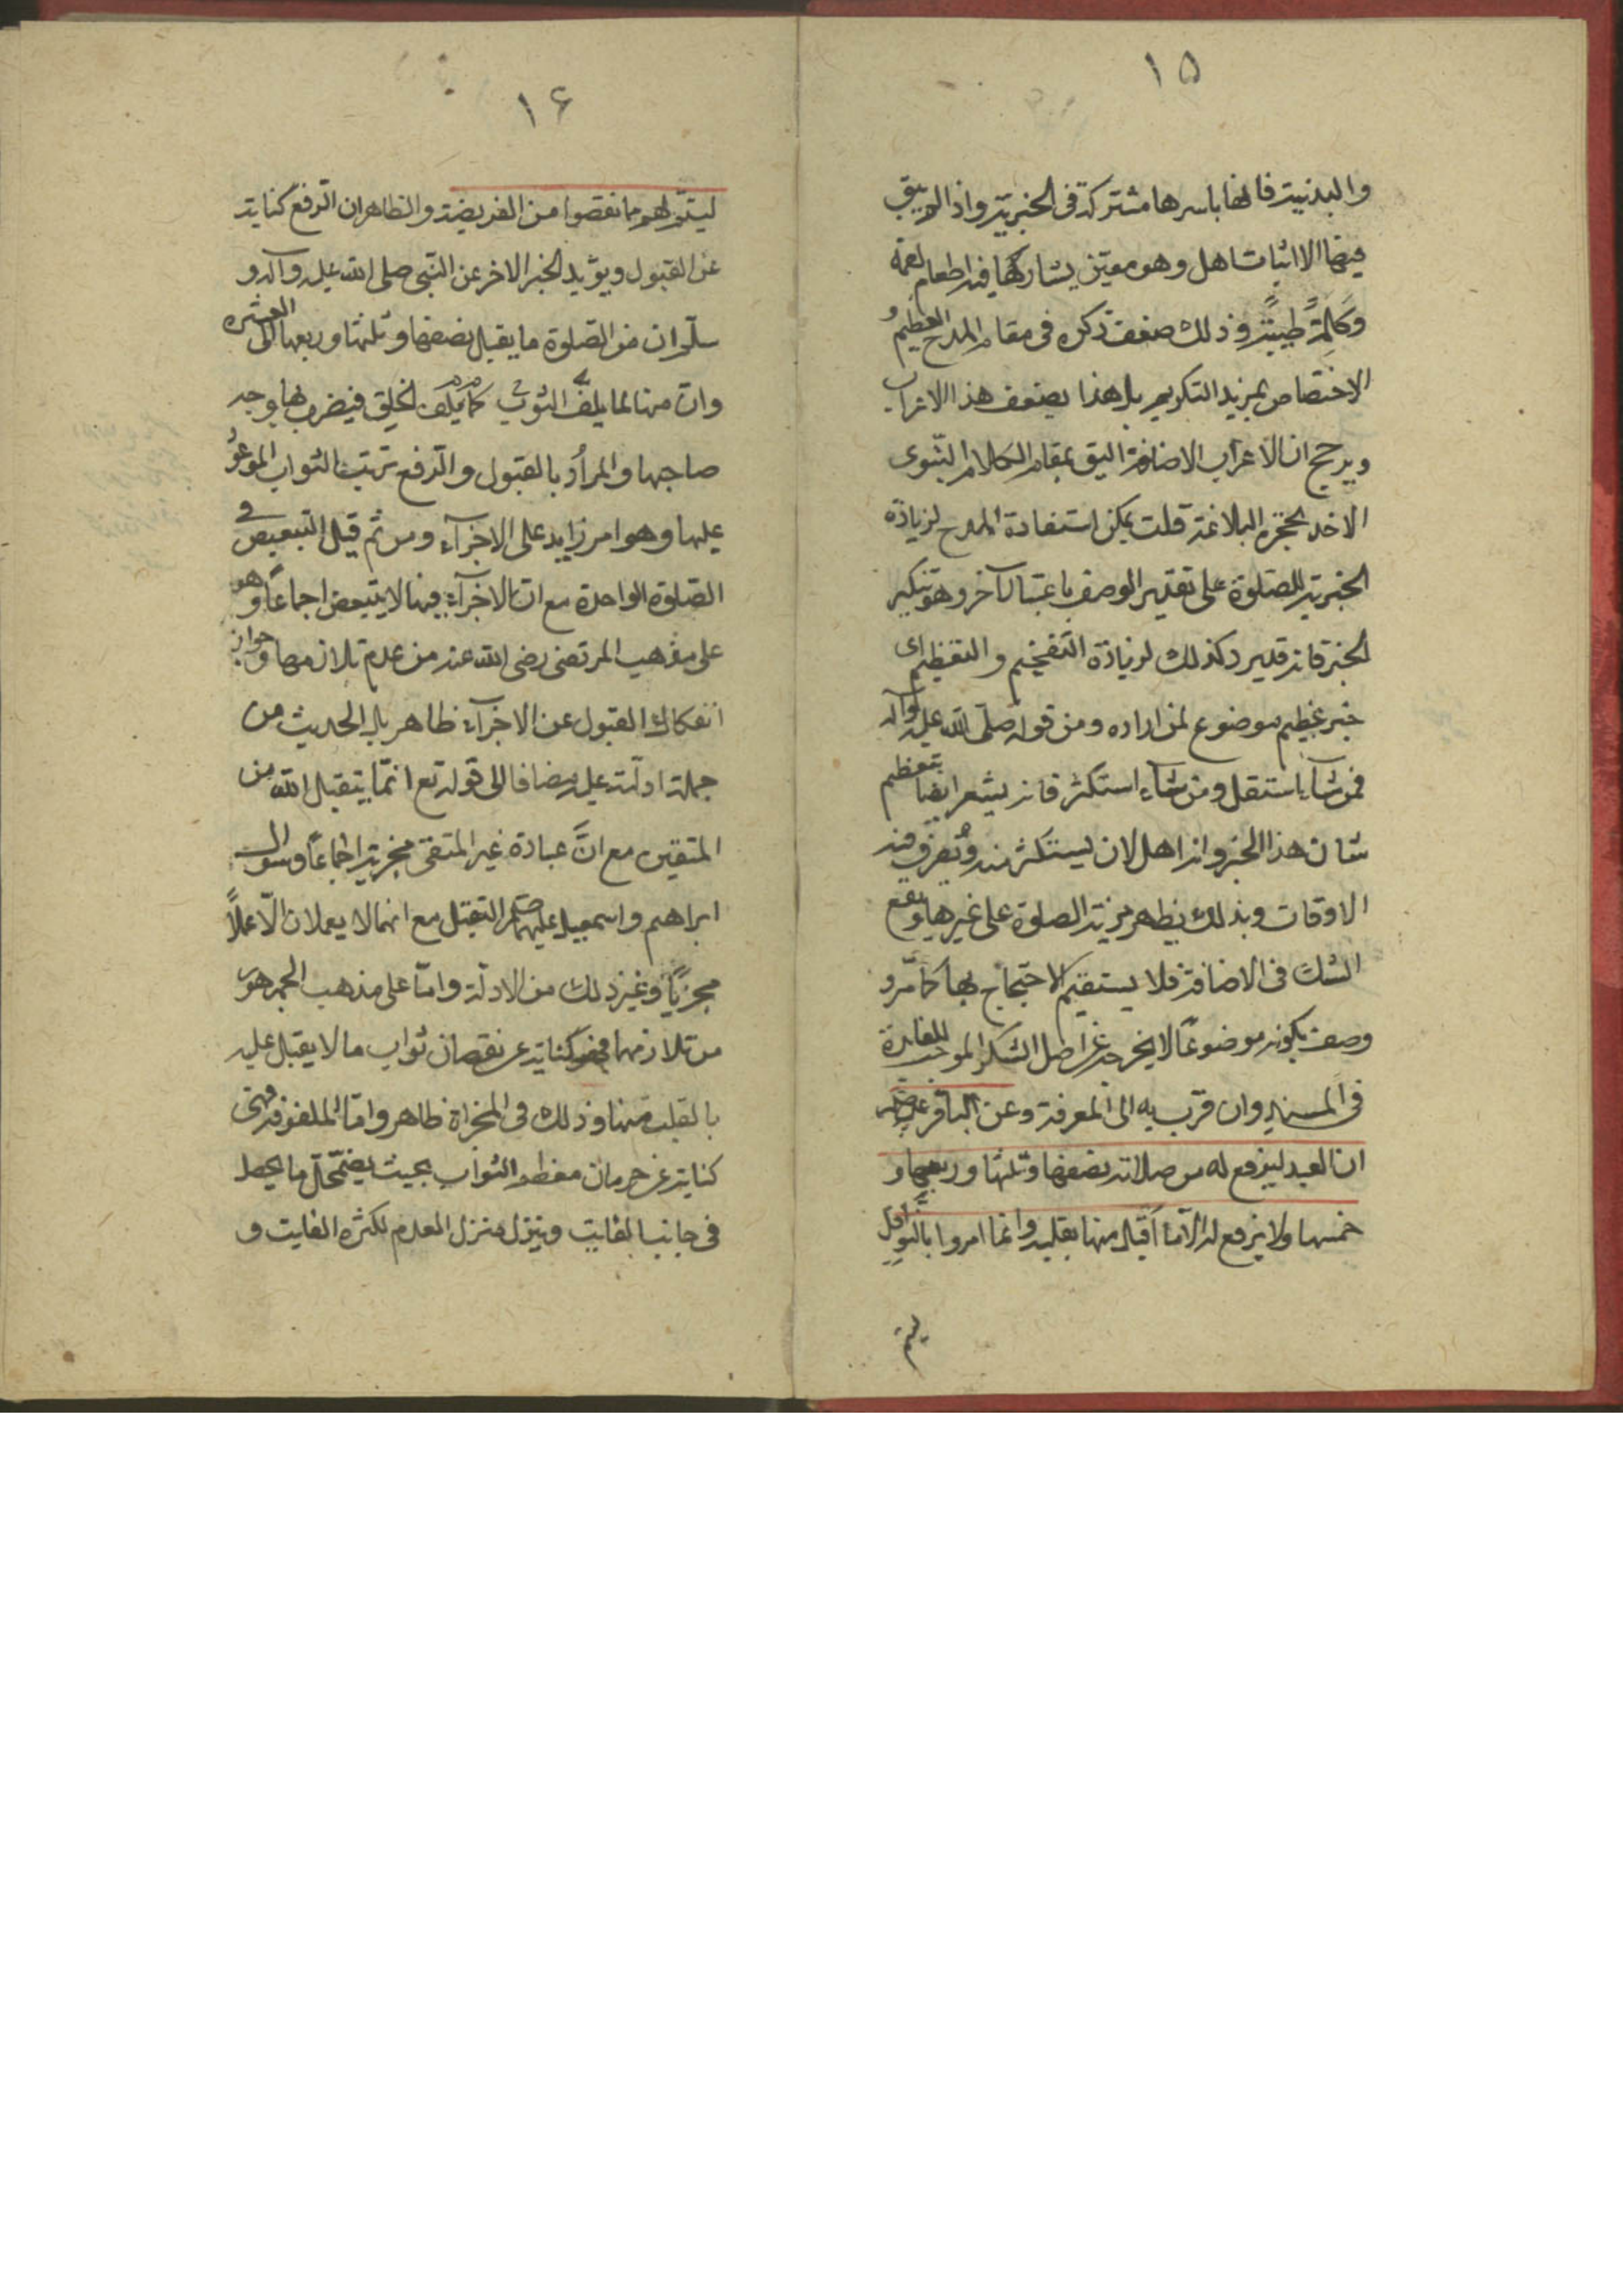 ١٥
والبدنية فانها باسرها مشتركة فى الخيرية واذا لم يبق
فيها الا اثبات اهل وهو معين يشاركها فيه اطعام لقمة
وكلمة طيبة وذلك ضعف ذكره فى مقام المدح العظيم و
الاختصاص بمزيد التكريم بل هذا يضعف هذا الاعراب
ويرجح ان الاعراب الاضافة اليق بمقام الكلام النبوى
الاخذ بحجزة البلاغة قلت يمكن استفادة المدح لزيادة
الخيرية للصلوة على تقدير الوصف باعتبار آخر وهو تنكير
الخير فانه قد يرد كذلك لزيادة التفخيم والتعظيم اى
خير عظيم موضوع لمن اراده ومن قوله صلى الله عليه وآله
فمن شاء استقل ومن شاء استكثر فانه يشعر ايضا بتعظيم
شان هذا الخير وانه اهل لان يستكثر منه وتصرف فيه
الاوقات وبذلك يظهر مزية الصلوة على غيرها ويقع
الشك فى الاضافة فلا يستقيم الاحتجاج بها كما مر و
وصف بكونه موضوعا لا يخرجه عن اصل الشكر الموجب للمغايرة
فى المسند وان قرب به الى المعرفة وعن الباقر عليه السلم
ان العبد ليرفع له من صلاته نصفها وثلثها وربعها و
خمسها ولا يرفع له الا ما اقبل منها بقلبه وانما امروا بالنوافل
ليتم
١٦
ليتم لهم ما نقصوا من الفريضة والظاهر ان الرفع كناية
عن القبول ويؤيد الخبر الاخر عن النبى صلى الله عليه وآله و
سلم ان من الصلوة ما يقبل نصفها وثلثها وربعها الى العشر
وان منها لما يلف الثوب كما يلف الخلق فيضرب بها وجه
صاحبها والمراد بالقبول والرفع ترتب الثواب الموعود
عليها وهو امر زايد على الاجزاء ومن ثم قيل التبعيض فى
الصلوة الواحدة مع ان الاجزاء فيها لا يتبعض اجماعا وهو
على مذهب المرتضى رضى الله عنه من عدم تلازمهما وجواز
انفكاك القبول عن الاجزاء ظاهر بل الحديث من
جملة ادلته عليه مضافا الى قوله تع انما يتقبل الله من
المتقين مع ان عبادة غير المتقى مجزية اجماعا وسؤال
ابراهيم واسمعيل عليهما السلم التقبل مع انهما لا يعملان الا عملا
مجزيا وغير ذلك من الادلة واما على مذهب الجمهور
من تلازمهما فهو كناية عن نقصان ثواب ما لا يقبل عليه
بالقلب منها وذلك فى المجزاة ظاهر واما الملفوفة فهى
كناية عن حرمان معظم الثواب بحيث يضمحل ما يحصل
فى جانب الفايت وينزل منزلة العدم لكثرة الفايت و